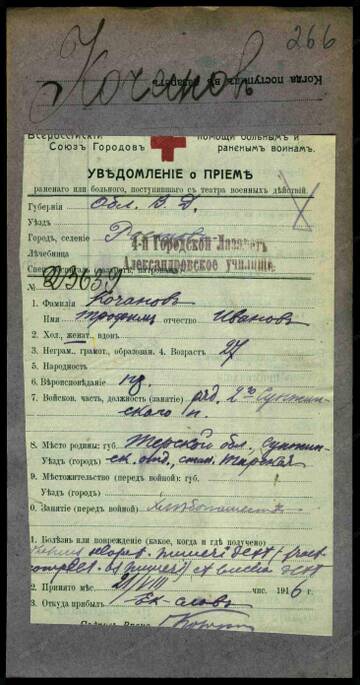 266
Когда поступилъ въ лазаретъ
Кочановъ
Всероссійскій помощи больнымъ и
Союзъ Городовъ раненымъ воинамъ.
УВѢДОМЛЕНІЕ о ПРІЕМѢ
раненаго или больного, поступившаго съ театра военныхъ дѣйствій.
Губернія Обл. В. Д.
Уѣздъ
Городъ, селеніе
4-й Городской Лазаретъ
Лечебница
Александровское училище
№ 23639
1. Фамилія Кочановъ
Имя Трофимъ отчество Ивановъ
2. Хол., женат. вдовъ
3. Неграм., грамот., образован. 4. Возрастъ 27
5. Народность
6. Вѣроисповѣданіе пр.
7. Войсков. часть, должность (занятіе) ряд. 2го Сунжен-
скаго п.
8. Мѣсто родины: губ. Терской обл., Сунжен-
Уѣздъ (городъ) ск. отд., стан.
9. Мѣстожительство (передъ войной): губ.
Уѣздъ (городъ)
0. Занятіе (передъ войной) хлѣбопашецъ
1. Болѣзнь или поврежденіе (какое, когда и гдѣ получено)
2. Принято мѣс. 21/VIII час. 1916
3. Откуда прибылъ Ек-славъ